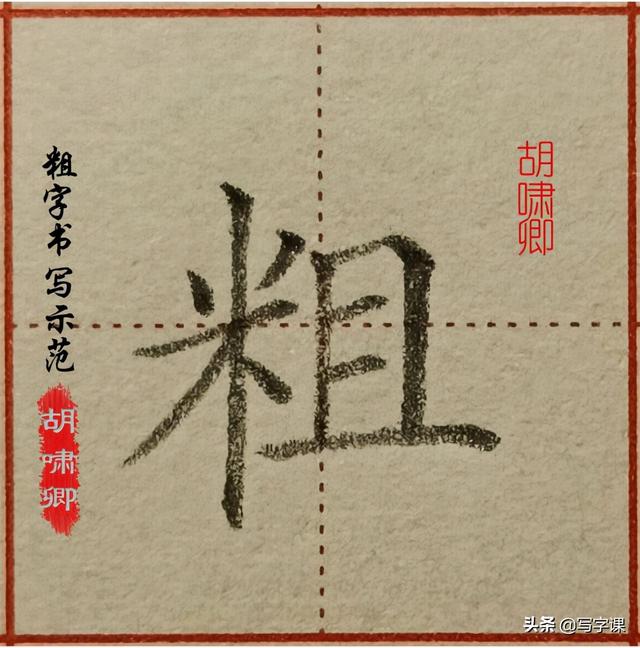 粗字书写示范
胡啸卿
粗
胡啸卿
头条 @写字课